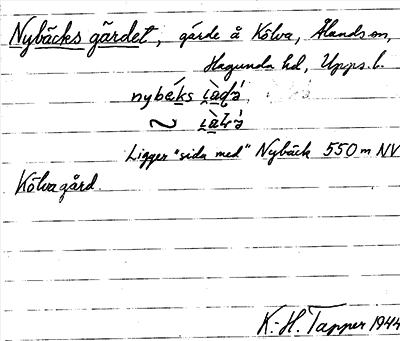 Nybäcks gärdet, gärde å Kölva, Ålands sn,
Hagunda hd, Upps. l.
nybéks
~
Ligger "sida med" Nybäck 550 m NV
Kölva gård.
K.-H. Tapper 1944